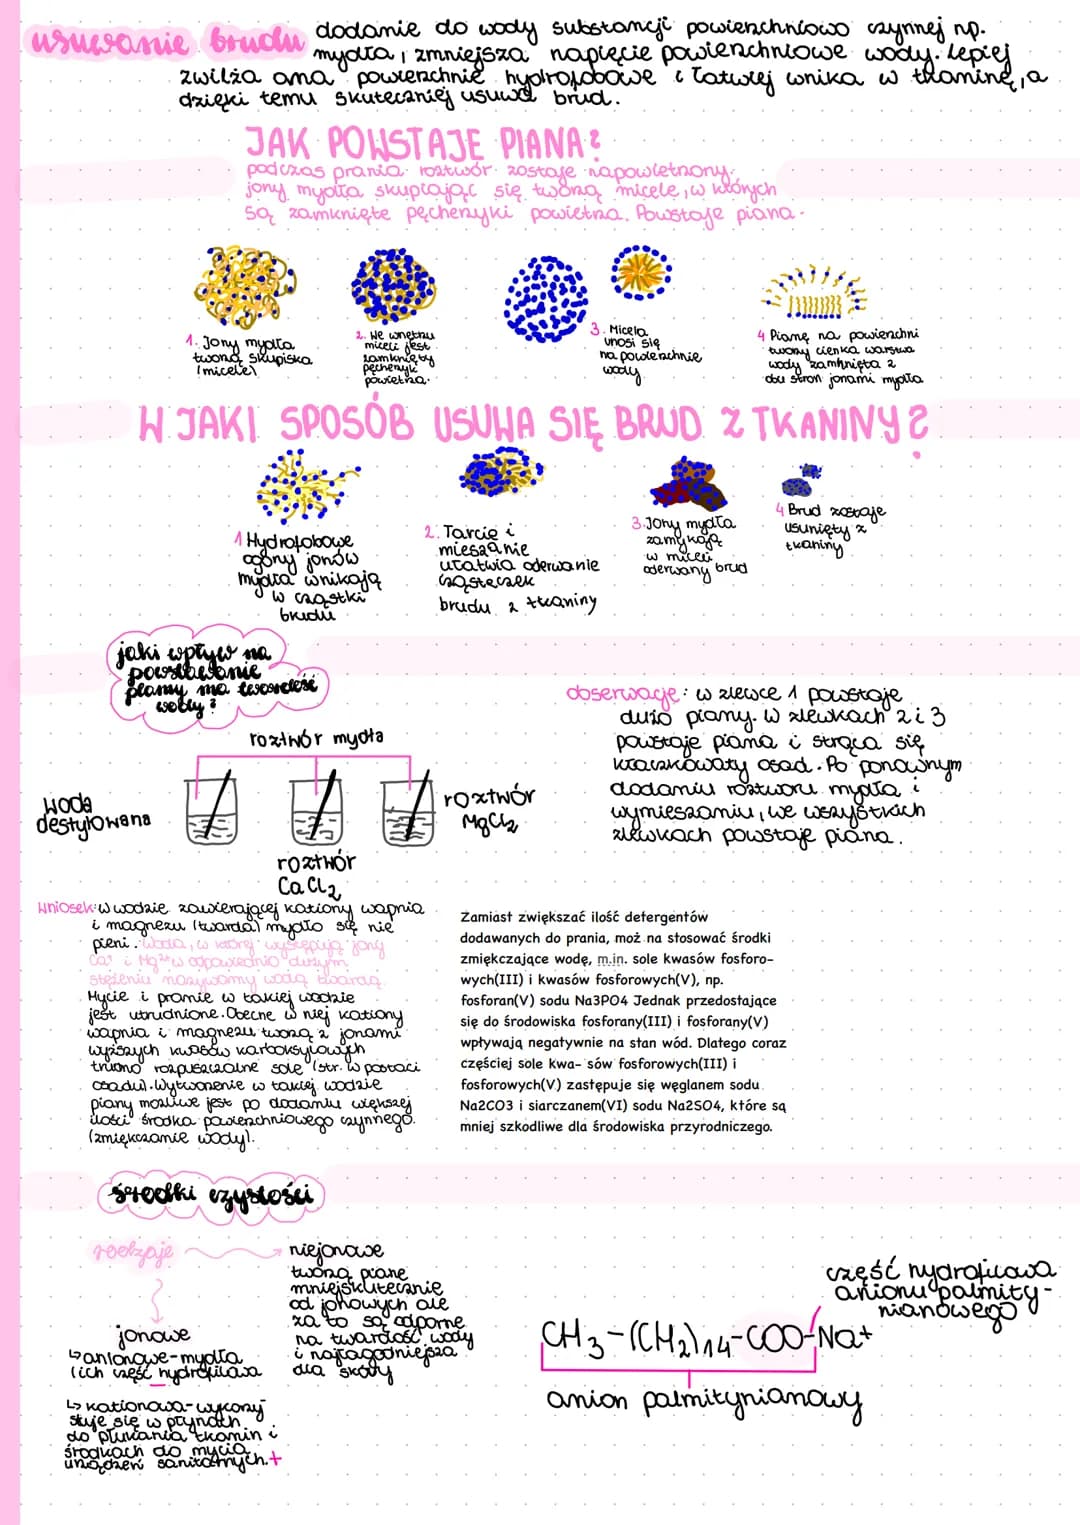 usuwanie brudu
dodanie do wody substancji powierzchniowo czynnej np.
mydła, zmniejsza napięcie powierzchniowe wody. Lepiej
zwilża ona powierzchnie hydrofobowe i łatwiej wnika w tkaninę, a
dzięki temu skuteczniej usuwa brud.
JAK POWSTAJE PIANA?
podczas prania roztwór zostaje napowietrzony.
jony mydła skupiając się tworzą micele, w których
są zamknięte pęcherzyki powietrza. Powstaje piana.
1. Jony mydła
tworzą skupiska
(micele)
2. We wnętrzu
miceli jest
zamknięty
pęcherzyk
powietrza.
3. Micela
unosi się
na powierzchnię
wody
4 Pianę na powierzchni
tworzy cienka warstwa
wody zamknięta z
obu stron jonami mydła
W JAKI SPOSÓB USUWA SIĘ BRUD Z TKANINY?
1 Hydrofobowe
ogony jonów
mydła wnikają
w cząstki
brudu
2. Tarcie i
mieszanie
ułatwia oderwanie
cząsteczek
brudu z tkaniny
3. Jony mydła
zamykają
w miceli
oderwany brud
4 Brud zostaje
usunięty z
tkaniny
jaki wpływ na
powstawanie
piany ma twardość
wody?
roztwór mydła
woda
destylowana
roztwór
CaCl2
roztwór
MgCl2
obserwacje: w zlewce 1 powstaje
dużo piany. W zlewkach 2 i 3
powstaje piana i strąca się
kłaczkowaty osad. Po ponownym
dodaniu roztworu mydła i
wymieszaniu, we wszystkich
zlewkach powstaje piana.
Wniosek: W wodzie zawierającej kationy wapnia
i magnezu (twarda) mydło się nie
pieni. Woda, w której występują jony
Ca²⁺ i Mg²⁺ w odpowiednio dużym
stężeniu nazywamy wodą twardą.
Mycie i pranie w takiej wodzie
jest utrudnione. Obecne w niej kationy
wapnia i magnezu tworzą z jonami
wyższych kwasów karboksylowych
trudno rozpuszczalne sole (str. w postaci
osadu). Wytworzenie w takiej wodzie
piany możliwe jest po dodaniu większej
ilości środka powierzchniowego czynnego.
(zmiękczanie wody).
Zamiast zwiększać ilość detergentów
dodawanych do prania, moż na stosować środki
zmiękczające wodę, m.in. sole kwasów fosforo-
wych(III) i kwasów fosforowych(V), np.
fosforan(V) sodu Na3PO4 Jednak przedostające
się do środowiska fosforany(III) i fosforany(V)
wpływają negatywnie na stan wód. Dlatego coraz
częściej sole kwa- sów fosforowych(III) i
fosforowych(V) zastępuje się węglanem sodu
Na2CO3 i siarczanem(VI) sodu Na2SO4, które są
mniej szkodliwe dla środowiska przyrodniczego.
środki czystości
rodzaje
niejonowe
tworzą pianę
mniej skutecznie
od jonowych ale
za to są odporne
na twardość wody
i najłagodniejsza
dla skóry
jonowe
↳ anionowe - mydła
(ich część hydrofilowa
↳ kationowa - wykorzy
stuje się w płynach
do płukania tkanin i
środkach do mycia
urządzeń sanitarnych. +
część hydrofilowa
anionu palmity-
nianowego
CH3-(CH2)14-COO-Na+
anion palmitynianowy